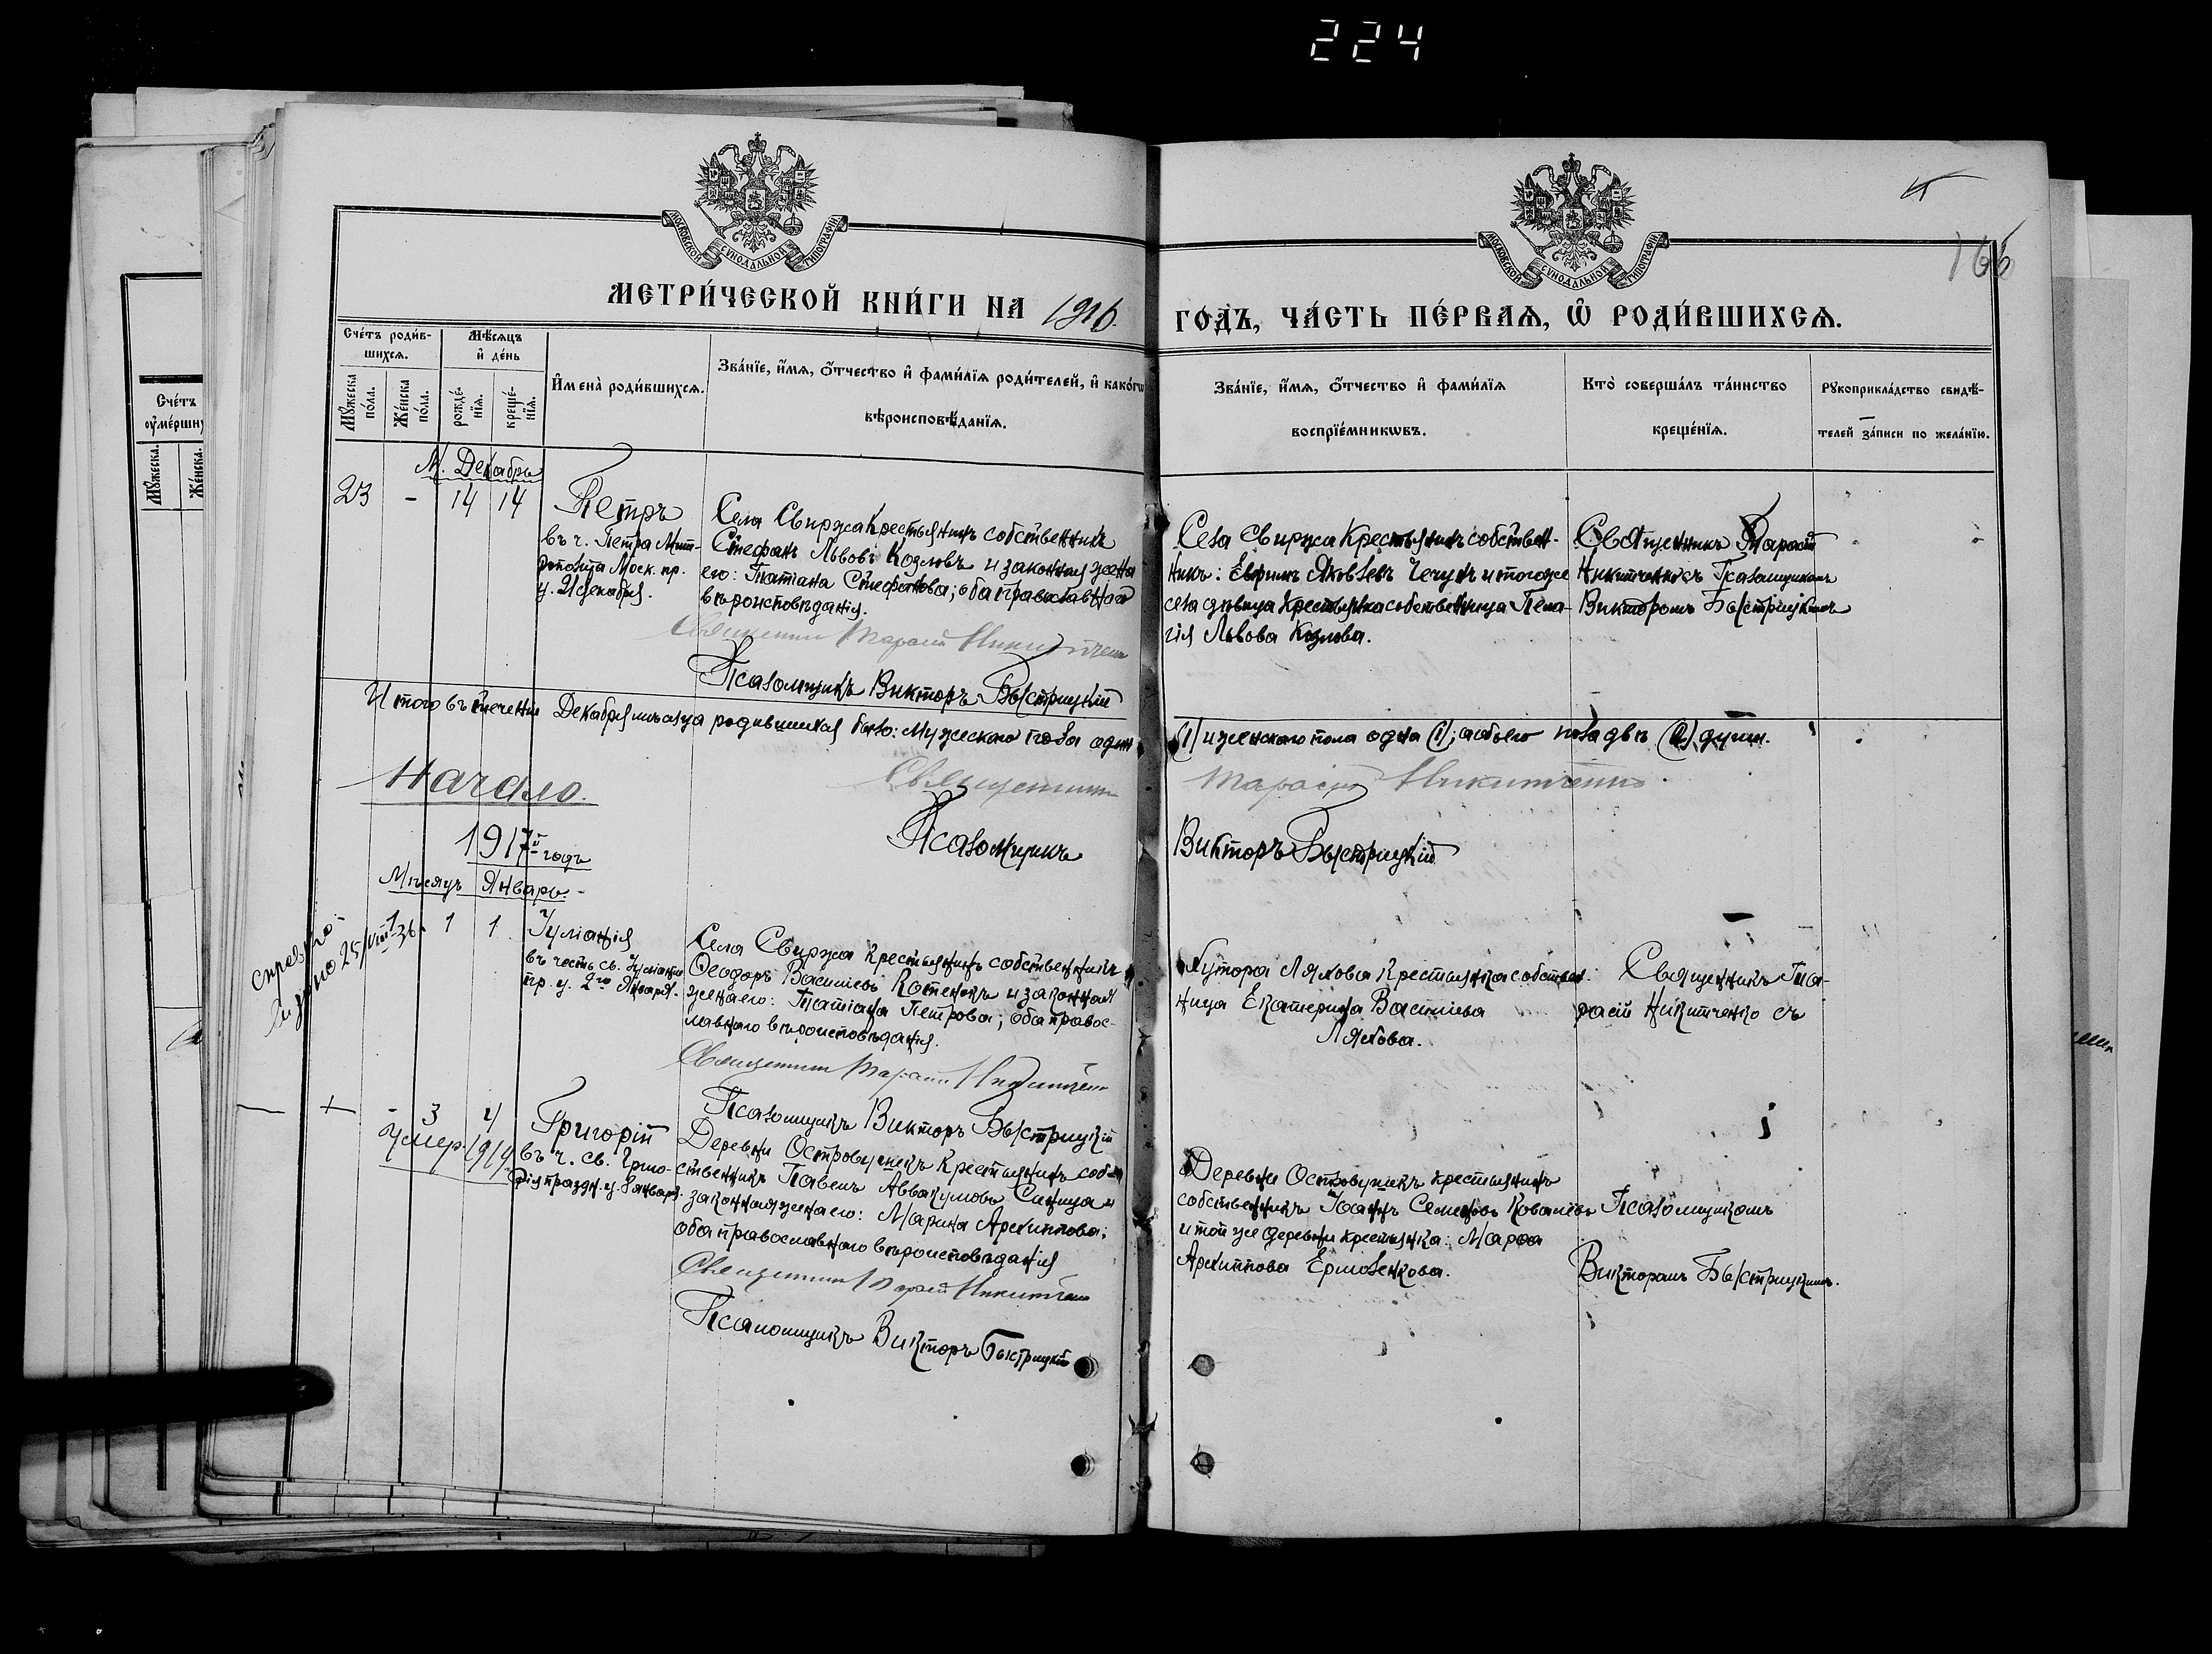 224
МОСКОВСКОЙ СѴНОДАЛЬНОЙ ТИПОГРАФІИ
МОСКОВСКОЙ СѴНОДАЛЬНОЙ ТИПОГРАФІИ
166
МЕТРИ́ЧЕСКОЙ КНИ́ГИ НА 1916. ГО́ДЪ, ЧА́СТЬ ПЕ́РВАѦ, Ѡ РОДИ́ВШИХСѦ.
Сче́тъ роди́в-
шихсѧ.
Мꙋ́жеска по́ла.
Же́нска по́ла.
Мѣ́сѧцъ
и҆ де́нь
рожде́-
нїѧ.
креще́-
нїѧ.
И҆мена̀ роди́вшихсѧ.
Зва́нїе, и҆́мѧ, ѻ҆́тчество и҆ фами́лїѧ роди́телей, и҆ како́гѡ
вѣроисповѣ́данїѧ.
Зва́нїе, и҆́мѧ, ѻ҆́тчество и҆ фами́лїѧ
воспрїе́мникѡвъ.
Кто̀ соверша́лъ та́инство
креще́нїѧ.
Рꙋкоприкла́дство свидѣ́-
телей за́писи по жела́нїю.
Сче́тъ
Мꙋ́жеска.
Же́нска.
М. Декабрь
23 - 14 14
Петръ
въ ч. Петра Мит-
рополита Моск. пр.
ч. 21 декабря.
Села Свиржа Крестьянинъ собственникъ
Стефанъ Львовъ Козловъ и законная жена
его: Татіана Стефанова; оба православнаго
вѣроисповѣданія.
Священникъ Тарасій Никитченко
Псаломщикъ Викторъ Быстрицкій
Села Свиржа Крестьянинъ собствен-
никъ: Ефимъ Яковлевъ Чечукъ и того же
села дѣвица Крестьянка собственница Пела-
гія Львова Козлова.
Священникъ Тарасій
Никитченко съ Псаломщикомъ
Викторомъ Быстрицкимъ
Итого въ теченіи Декабря мѣсяца родившихся было: Мужескаго пола одинъ (1) и женскаго пола одна (1); а обоего пола двѣ (2) души.
Священникъ Тарасій Никитченко
Псаломщикъ Викторъ Быстрицкій
Начало.
1917й годъ
Мѣсяцъ Январь.
1 1 1
Іуліанія
въ честь св. Іуліаніи
пр. ч. 2го Января.
Села Свиржа Крестьянинъ собственникъ
Ѳеодоръ Василіевъ Котенокъ и законная
жена его: Татіана Петрова; оба правос-
лавнаго вѣроисповѣданія.
Священникъ Тарасій Никитченко
Псаломщикъ Викторъ Быстрицкій
Хутора Ляхова Крестьянка собствен-
ница Екатерина Василіева
Ляхова.
Священникъ Та-
расій Никитченко съ
1 - 3 4
Умер. 1919
Григорій
въ ч. св. Григо-
рія праздн. ч. 8 января.
Деревни Островушекъ Крестьянинъ соб-
ственникъ Павелъ Аввакумовъ Синица и
законная жена его: Марина Архиппова;
оба православнаго вѣроисповѣданія
Священникъ Тарасій Никитченко
Псаломщикъ Викторъ Быстрицкій
Деревни Островушекъ крестьянинъ
собственникъ Іоаннъ Семеновъ Ковалевъ
и той же деревни крестьянка: Марѳа
Архиппова Ермоленкова.
Псаломщикомъ
Викторомъ Быстрицкимъ.